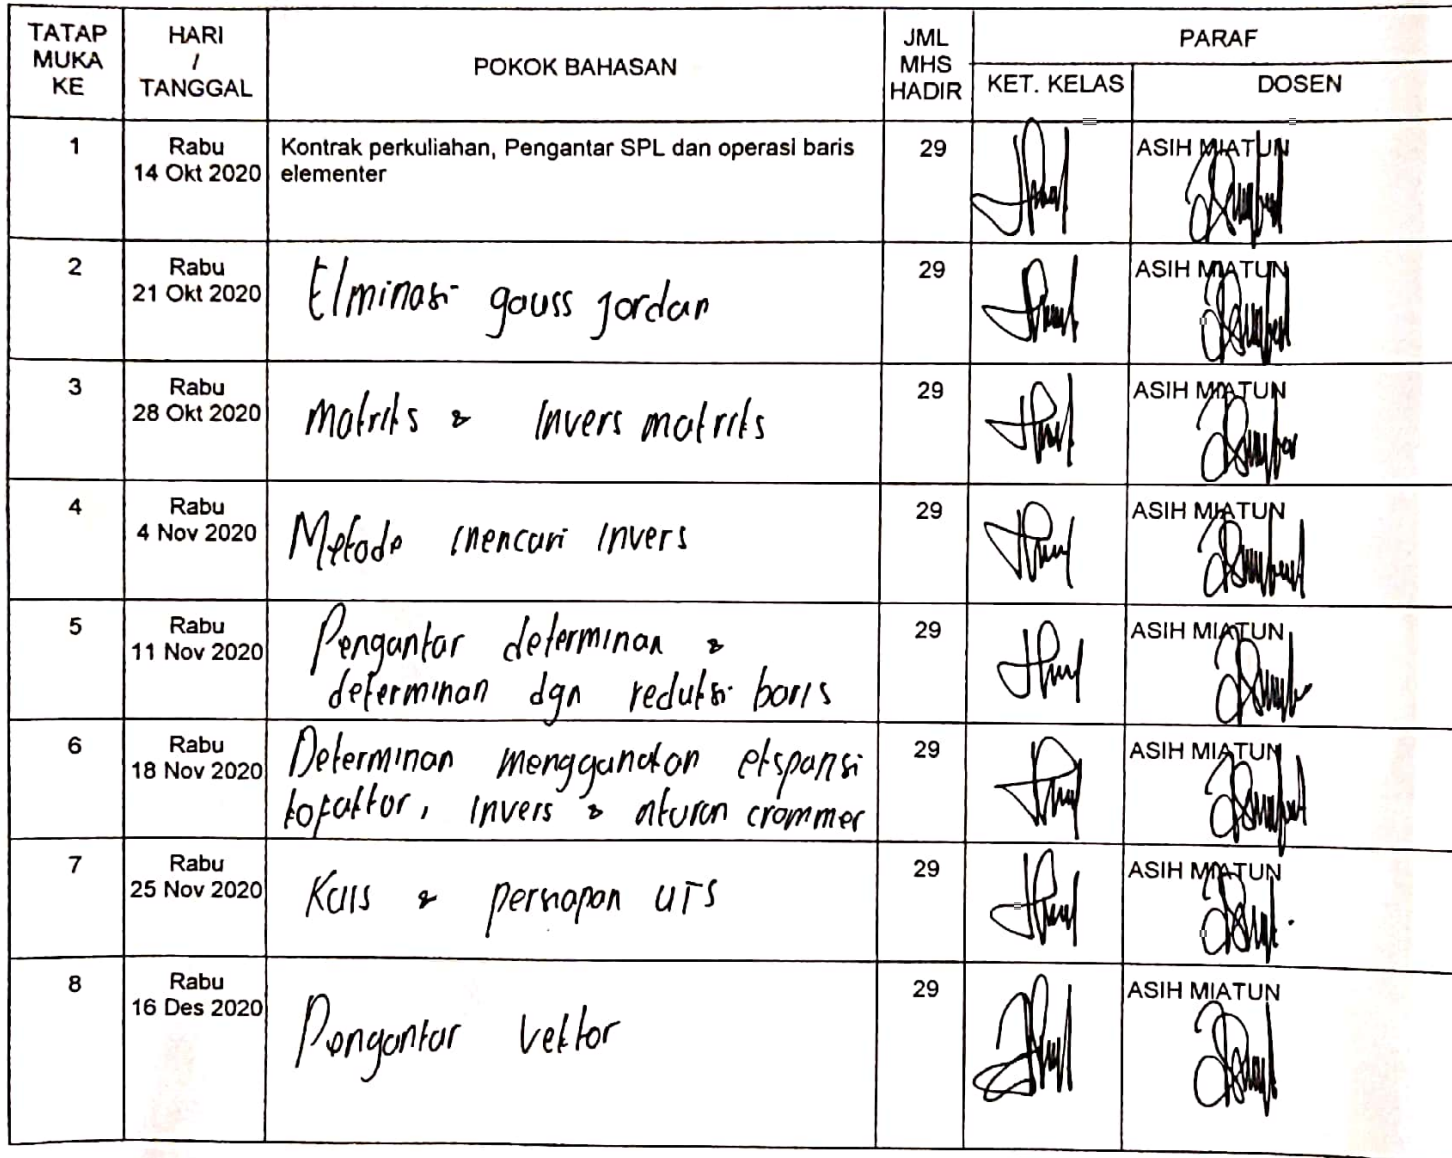 TATAP MUKA KE
HARI / TANGGAL
POKOK BAHASAN
JML MHS HADIR
PARAF
KET. KELAS
DOSEN
1
Rabu
14 Okt 2020
Kontrak perkuliahan, Pengantar SPL dan operasi baris
elementer
29
ASIH MIATUN
2
Rabu
21 Okt 2020
Elminasi gauss jordan
29
ASIH MIATUN
3
Rabu
28 Okt 2020
matriks & Invers matriks
29
ASIH MIATUN
4
Rabu
4 Nov 2020
Metode mencari invers
29
ASIH MIATUN
5
Rabu
11 Nov 2020
Pengantar determinan &
determinan dgn reduksi baris
29
ASIH MIATUN
6
Rabu
18 Nov 2020
Determinan menggunakan ekspansi
kofaktor, invers & aturan crammer
29
ASIH MIATUN
7
Rabu
25 Nov 2020
Kuis & persiapan UTS
29
ASIH MIATUN
8
Rabu
16 Des 2020
Pengantar vektor
29
ASIH MIATUN